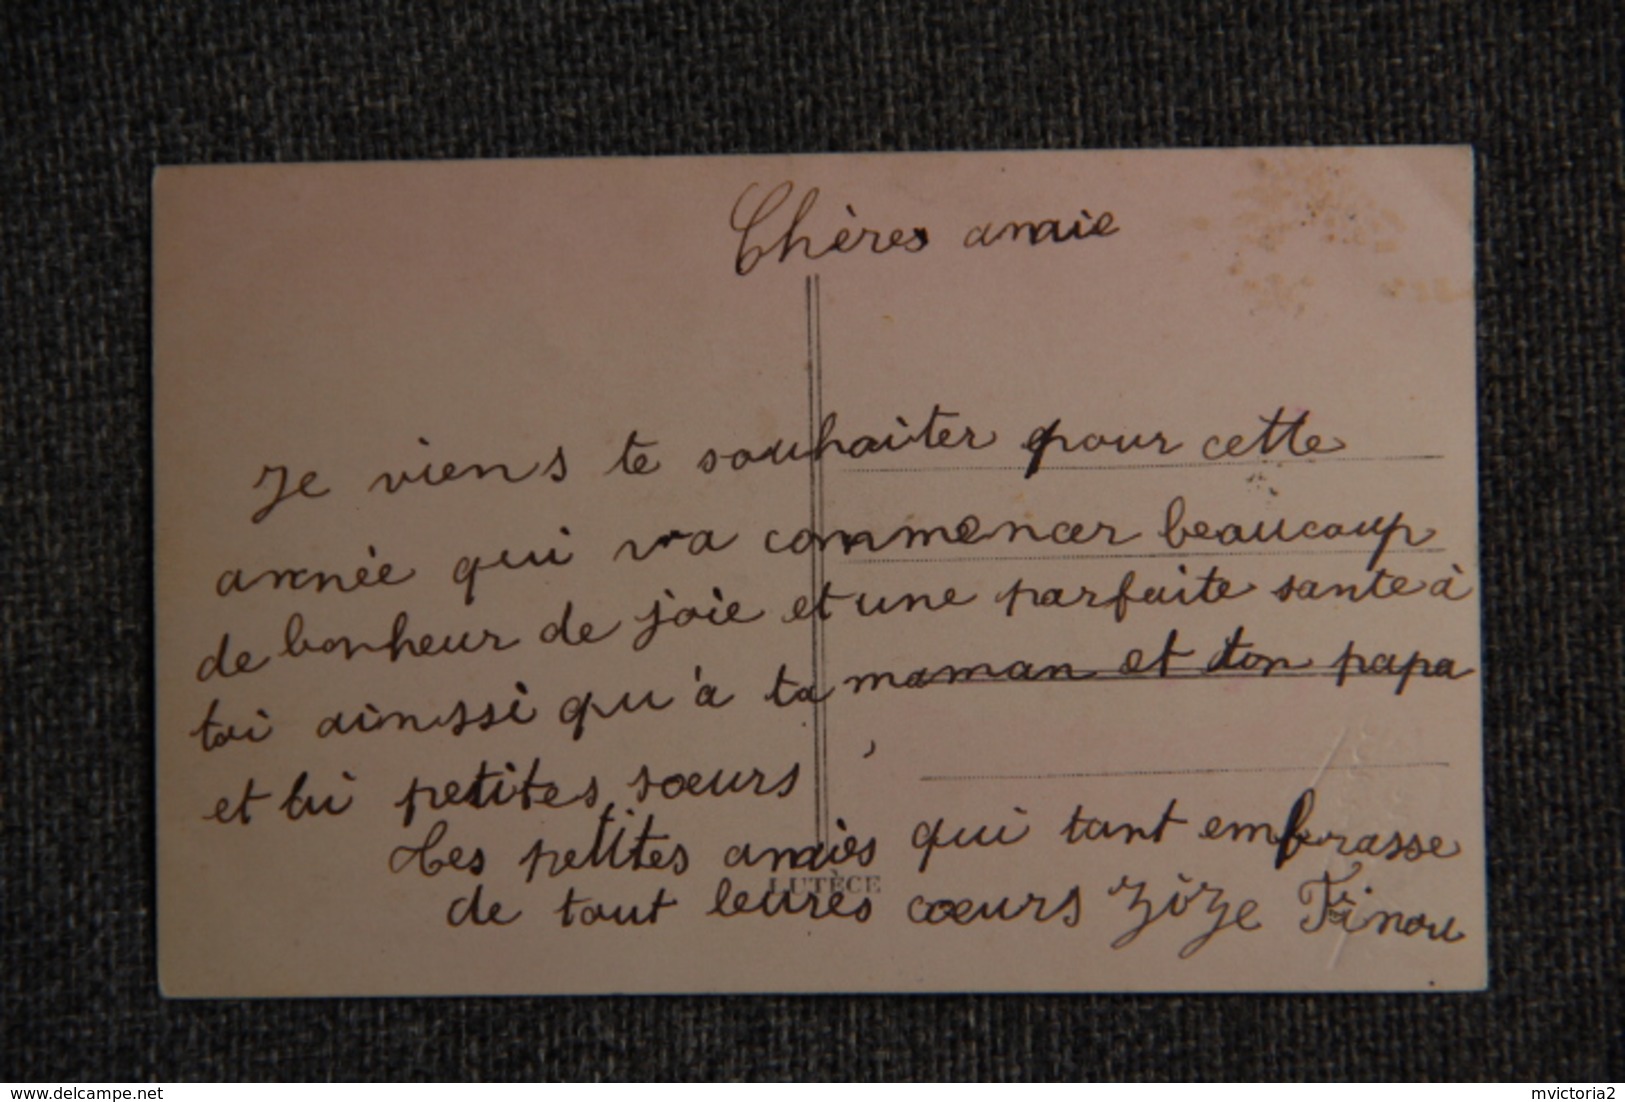 Chères amie
Je viens te souhaiter pour cette
année qui va commencer beaucoup
de bonheur de joie et une parfaite sante à
toi ainssi qu'à ta maman et ton papa
et tui petites sœurs
Les petites amies qui tant embrasse
LUTÈCE
de tout leures cœurs ZiZe Finou
www.delcampe.net
mvictoria2